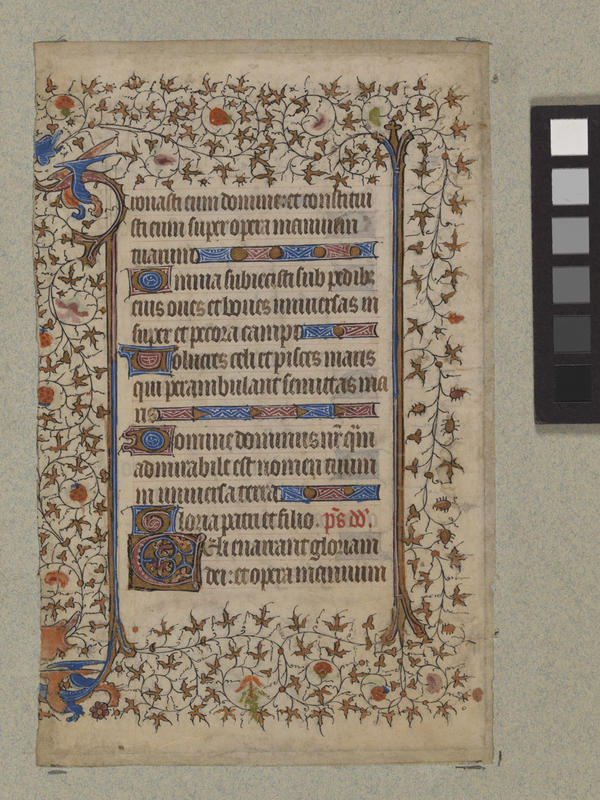 ronasti eum domine: et constitui
sti eum super opera manuum
tuarum
Omnia subiecisti sub pedibz
eius oues et boues uniuersas in
super et pecora campi
Uolucres celi et pisces maris
qui perambulant semittas ma
ris
Domine dominus nr̄ qm̄
admirabile est nomen tuum
in uniuersa terra
Gloria patri et filio. p̄s dd̄.
Celi enarrant gloriam
dei: et opera manuum